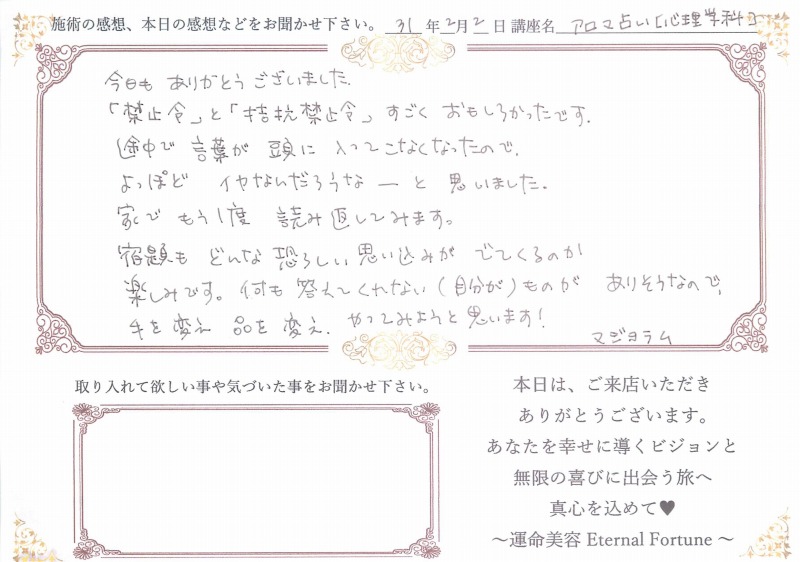 施術の感想、本日の感想などをお聞かせ下さい。 31 年 2月 2 日 講座名 アロマ占い[心理学科]
今日も ありがとうございました.
「禁止令」と「拮抗禁止令」すごく おもしろかったです.
途中で 言葉が 頭に 入ってこなくなったので、
よっぽど イヤなんだろうな ー と 思いました.
家で もう1度 読み返してみます。
宿題も どんな 恐ろしい 思い込みが でてくるのか
楽しみです。何も 答えてくれない (自分が) ものが ありそうなので、
手を変え 品を変え. やってみようと思います!
マジョラム
取り入れて欲しい事や気づいた事をお聞かせ下さい。
本日は、ご来店いただき
ありがとうございます。
あなたを幸せに導くビジョンと
無限の喜びに出会う旅へ
真心を込めて♥
〜運命美容 Eternal Fortune 〜